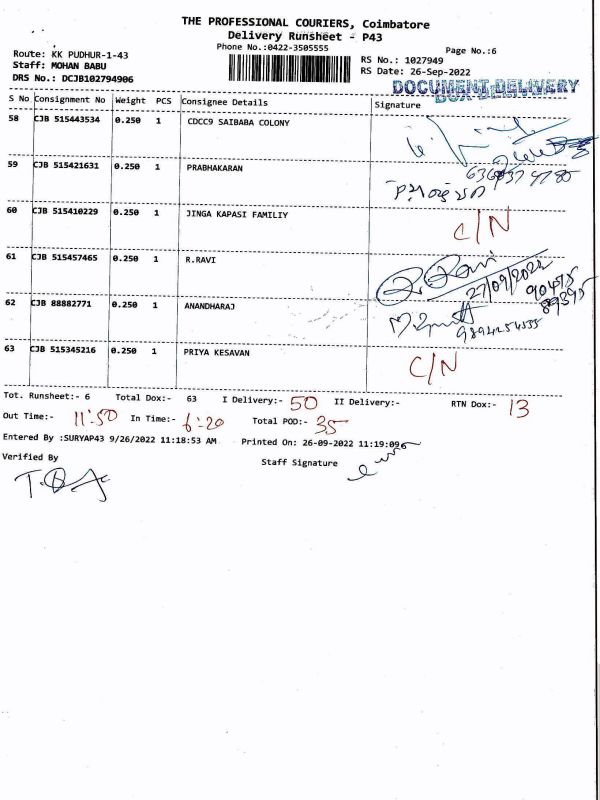 THE PROFESSIONAL COURIERS, Coimbatore
Delivery Runsheet - P43
Phone No.:0422-3505555
Page No.:6
Route: KK PUDHUR-1-43
Staff: MOHAN BABU
DRS No.: DCJB102794906
RS No.: 1027949
RS Date: 26-Sep-2022
DOCUMENT DELIVERY
S No Consignment No Weight PCS Consignee Details Signature
58 CJB 515443534 0.250 1 CDCC9 SAIBABA COLONY
59 CJB 515421631 0.250 1 PRABHAKARAN
60 CJB 515410229 0.250 1 JINGA KAPASI FAMILIY C/N
61 CJB 515457465 0.250 1 R.RAVI R. Ravi
27/09/2022
62 CJB 88882771 0.250 1 ANANDHARAJ
90475
89395
63 CJB 515345216 0.250 1 PRIYA KESAVAN C/N
Tot. Runsheet:- 6 Total Dox:- 63 I Delivery:- 50 II Delivery:- RTN Dox:- 13
Out Time:- 11:50 In Time:- 6:20 Total POD:- 35
Entered By :SURYAP43 9/26/2022 11:18:53 AM Printed On: 26-09-2022 11:19:09
Verified By Staff Signature